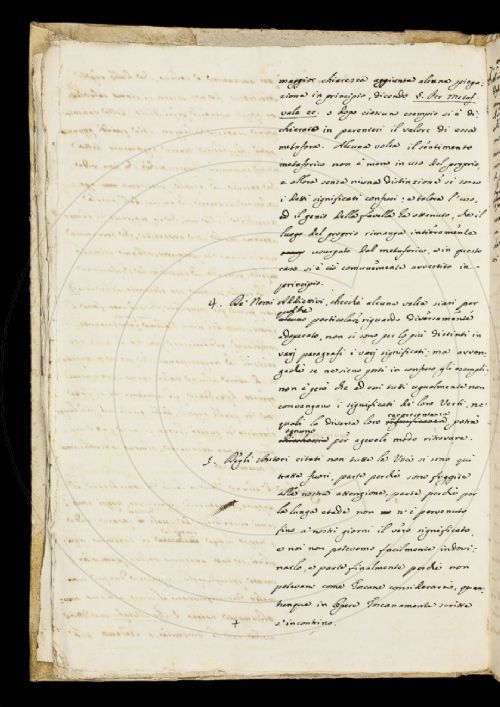 maggior chiarezza aggiunta alcuna spiega-
zione in principio, dicendo §. Per Metaf.
vale ec. e dopo ciascun esempio si è di-
chiarato in parentesi il valore di essa
metafora. Alcuna volta il sentimento
metaforico non è meno in uso del proprio,
e allora senza niuna distinzione si sono
i detti significati confusi; e talora l'uso,
ed il genio della favella ha ottenuto, che il
luogo del proprio rimanga intieramente
usurpato dal metaforico, e in questo
caso si è ciò comunemente avvertito in
principio.
4. De' Nomi Addiettivi, checchè alcuna volta siasi per
qualche
particolar riguardo diversamente
adoperato, non si sono per lo più distinti in
varj paragrafi i varj significati: ma avven-
gachè se ne sieno posti in confuso gli esempli
non è però che ad essi tutti ugualmente non
convengano i significati de' loro Verbi, ne'
quali la diversa loro rappresentanza potrà
ognuno
per agevole modo ritrovare.
5. Degli Autori citati non tutte le Voci si sono qui
tratte fuori, parte perchè sono fuggite
alla nostra attenzione, parte perchè per
la lunga etade non n'è pervenuto
fino a' nostri giorni il vero significato,
e noi non potevamo facilmente indovi-
narlo, e parte finalmente perchè non
potevano come Toscane considerarsi, quan-
tunque in Opere Toscanamente scritte
s'incontrino.
+